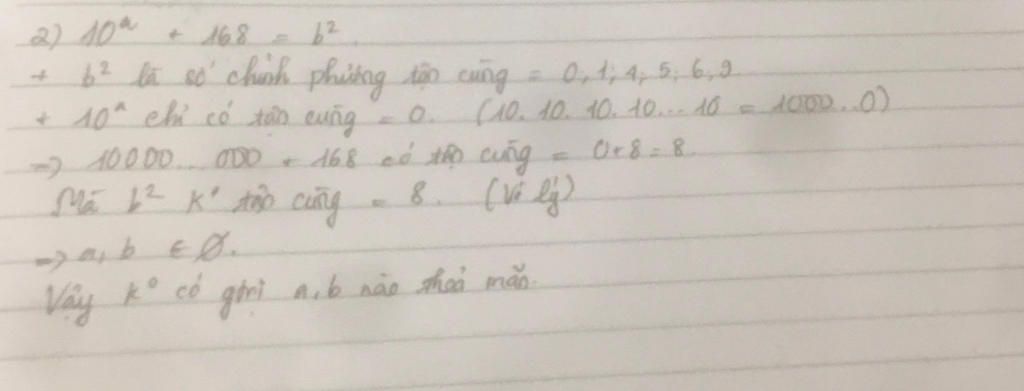 2) 10ᵃ + 168 = b².
+ b² là số chính phương tận cùng = 0, 1; 4, 5, 6, 9.
+ 10ᵃ chỉ có tận cùng = 0. (10. 10. 10. 10... 10 = 1000...0)
=> 10000...000 + 168 có tận cùng = 0+8 = 8.
Mà b² K° tận cùng = 8. (Vô lý)
=> a, b ∈ Ø.
Vậy K° có gtrị a, b nào thoả mãn.